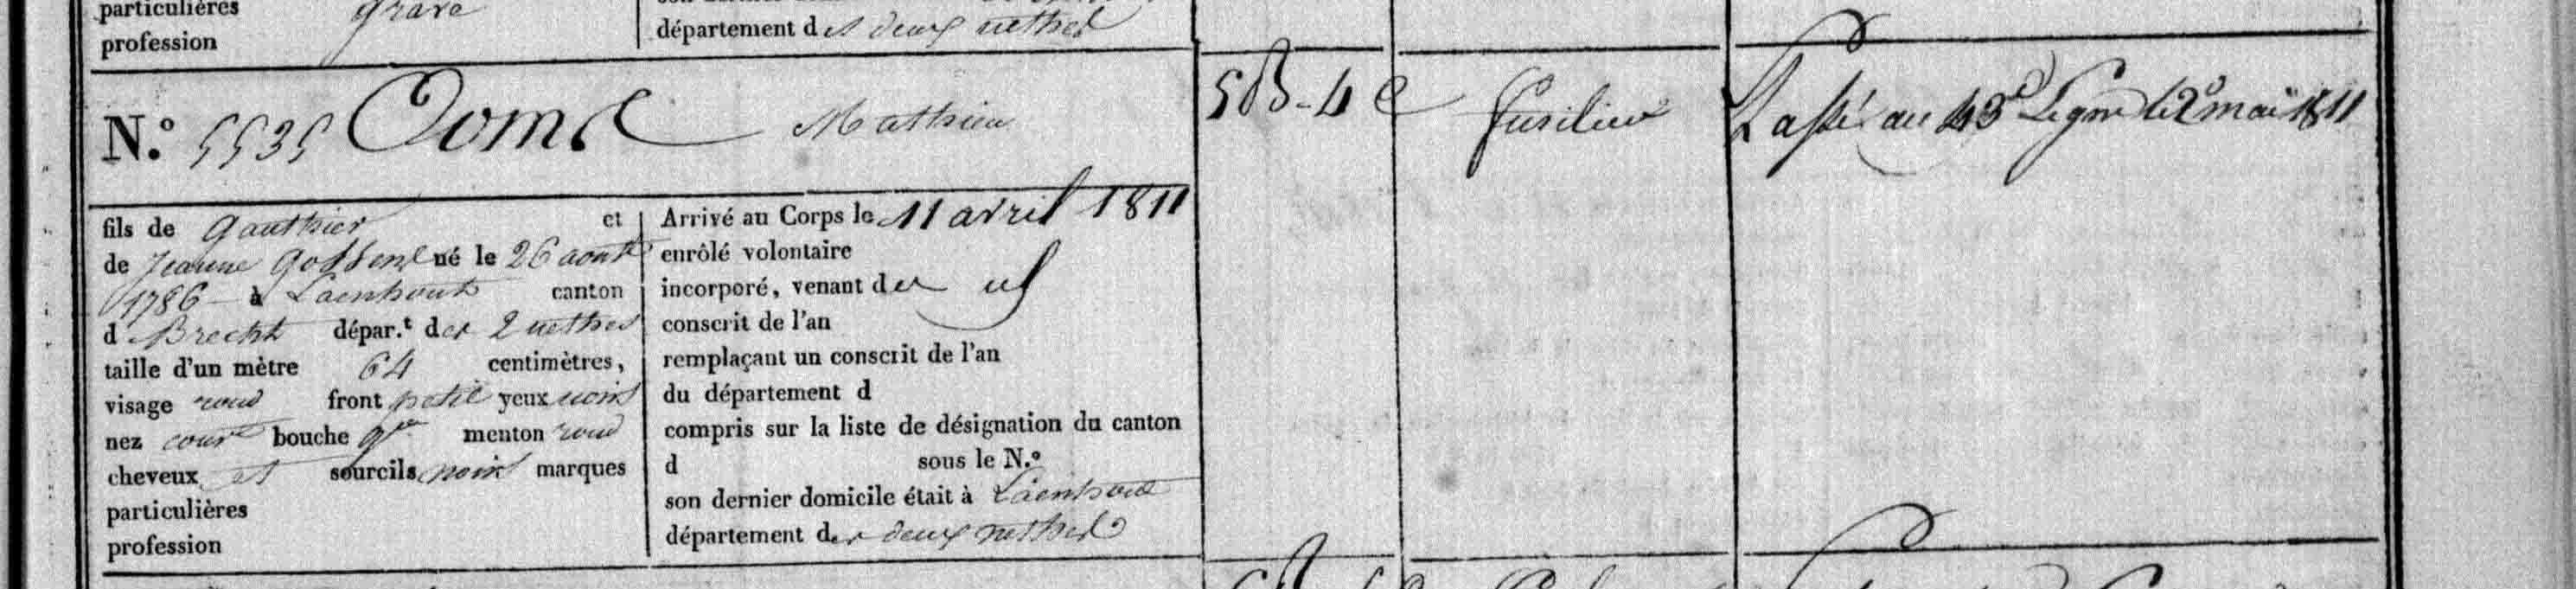 particulières grave
profession
département des deux nethes
N.º 5535 Ooms Mathieu
5 B - 4 C
Fusilier
Passé au 43e Ligne le 2 mai 1811
fils de Gauthier et
de Jeanne Gossens né le 26 aout
1786 à Loenhout canton
d Brecht dépar.t des 2 nethes
taille d'un mètre 64 centimètres,
visage rond front petit yeux noirs
nez court bouche gde menton rond
cheveux et sourcils noirs marques
particulières
profession
Arrivé au Corps le 11 avril 1811
enrôlé volontaire
incorporé, venant des
conscrit de l'an
remplaçant un conscrit de l'an
du département d
compris sur la liste de désignation du canton
d sous le N.º
son dernier domicile était à Loenhout
département des deux nethes